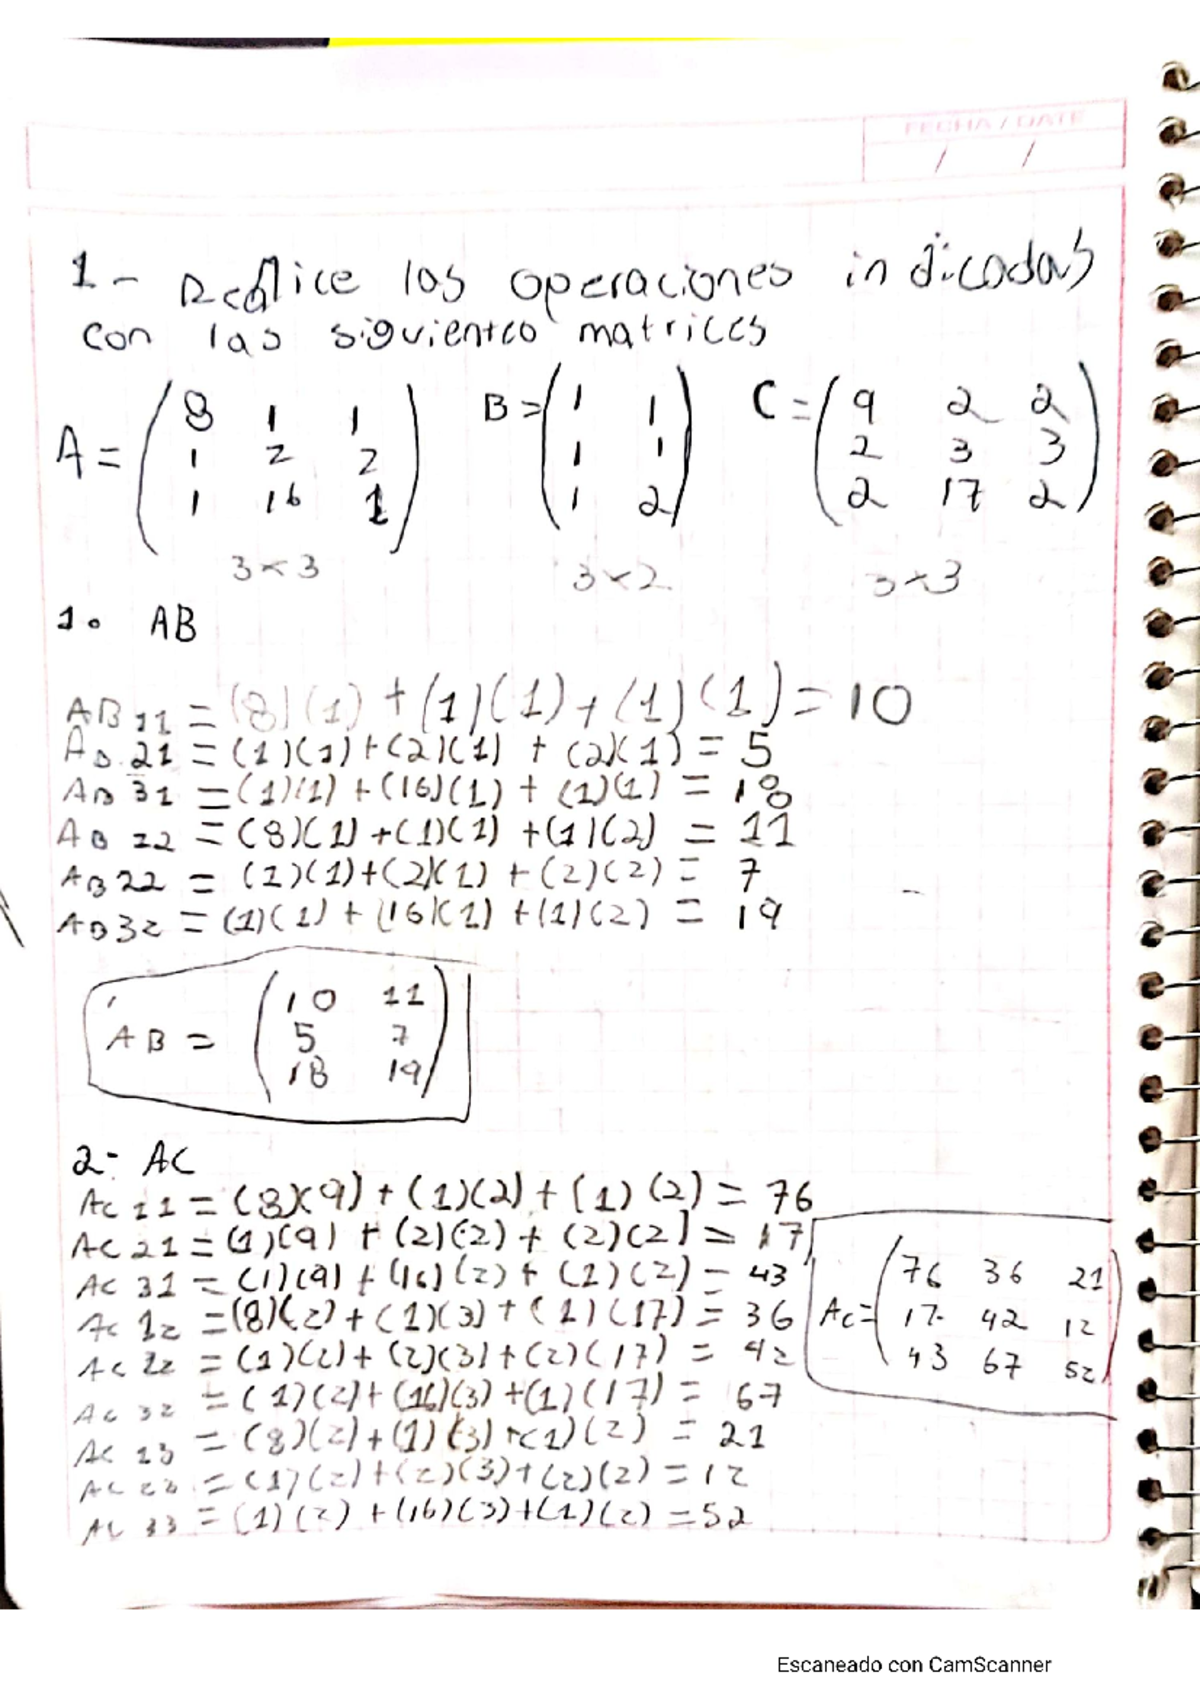 FECHA / DATE
/ /
1- Realice las operaciones indicadas
con las siguientes matrices
A = (8 1 1
1 2 2
1 16 1)
3x3
B = (1 1
1 1
1 2)
3x2
C = (9 2 2
2 3 3
2 17 2)
3x3
1. AB
AB 11 = (8)(1) + (1)(1) + (1)(1) = 10
AB 21 = (1)(1) + (2)(1) + (2)(1) = 5
AB 31 = (1)(1) + (16)(1) + (1)(1) = 18
AB 12 = (8)(1) + (1)(1) + (1)(2) = 11
AB 22 = (1)(1) + (2)(1) + (2)(2) = 7
AB 32 = (1)(1) + (16)(1) + (1)(2) = 19
AB = (10 11
5 7
18 19)
2- AC
AC 11 = (8)(9) + (1)(2) + (1)(2) = 76
AC 21 = (1)(9) + (2)(2) + (2)(2) = 17
AC 31 = (1)(9) + (16)(2) + (1)(2) = 43
AC 12 = (8)(2) + (1)(3) + (1)(17) = 36
AC 22 = (1)(2) + (2)(3) + (2)(17) = 42
AC 32 = (1)(2) + (16)(3) + (1)(17) = 67
AC 13 = (8)(2) + (1)(3) + (1)(2) = 21
AC 23 = (1)(2) + (2)(3) + (2)(2) = 12
AC 33 = (1)(2) + (16)(3) + (1)(2) = 52
AC = (76 36 21
17 42 12
43 67 52)
Escaneado con CamScanner